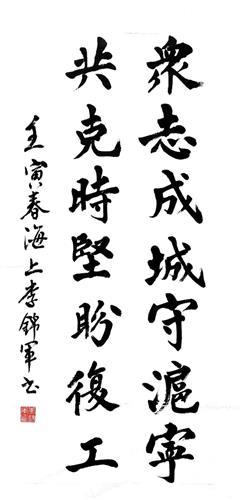 衆志成城守滬寧
共克時堅盼復工
壬寅春海上李錦軍书